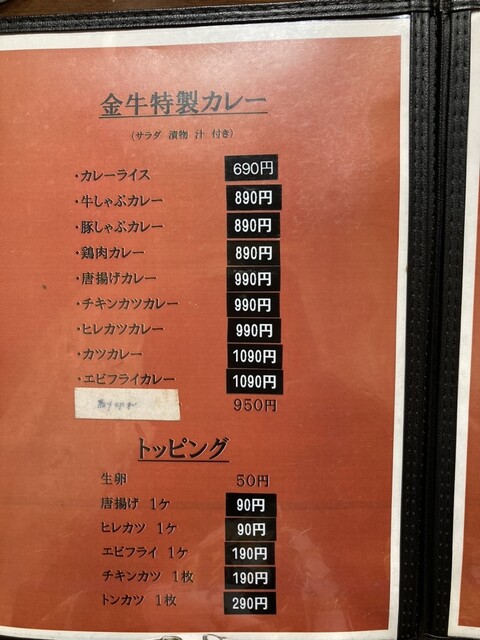 金牛特製カレー
(サラダ 漬物 汁 付き)
・カレーライス 690円
・牛しゃぶカレー 890円
・豚しゃぶカレー 890円
・鶏肉カレー 890円
・唐揚げカレー 990円
・チキンカツカレー 990円
・ヒレカツカレー 990円
・カツカレー 1090円
・エビフライカレー 1090円
950円
トッピング
生卵 50円
唐揚げ 1ケ 90円
ヒレカツ 1ケ 90円
エビフライ 1ケ 190円
チキンカツ 1枚 190円
トンカツ 1枚 290円